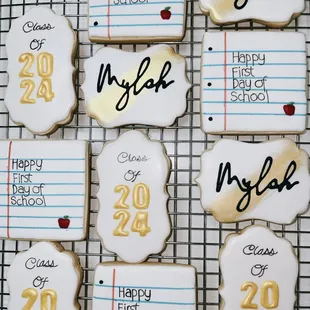 School
Class
Of
20
24
Mylsh
Happy
First
Day of
School
Happy
First
Day of
School
Class
Of
20
24
Mylsh
Class
Of
20
Happy
First
Class
Of
20